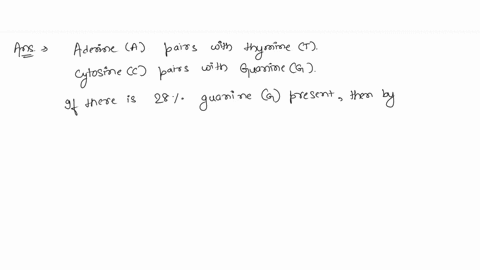 Ans. → Adenine (A) pairs with thymine (T).
Cytosine (C) pairs with Guanine (G).
If there is 28% guanine (G) present, then by